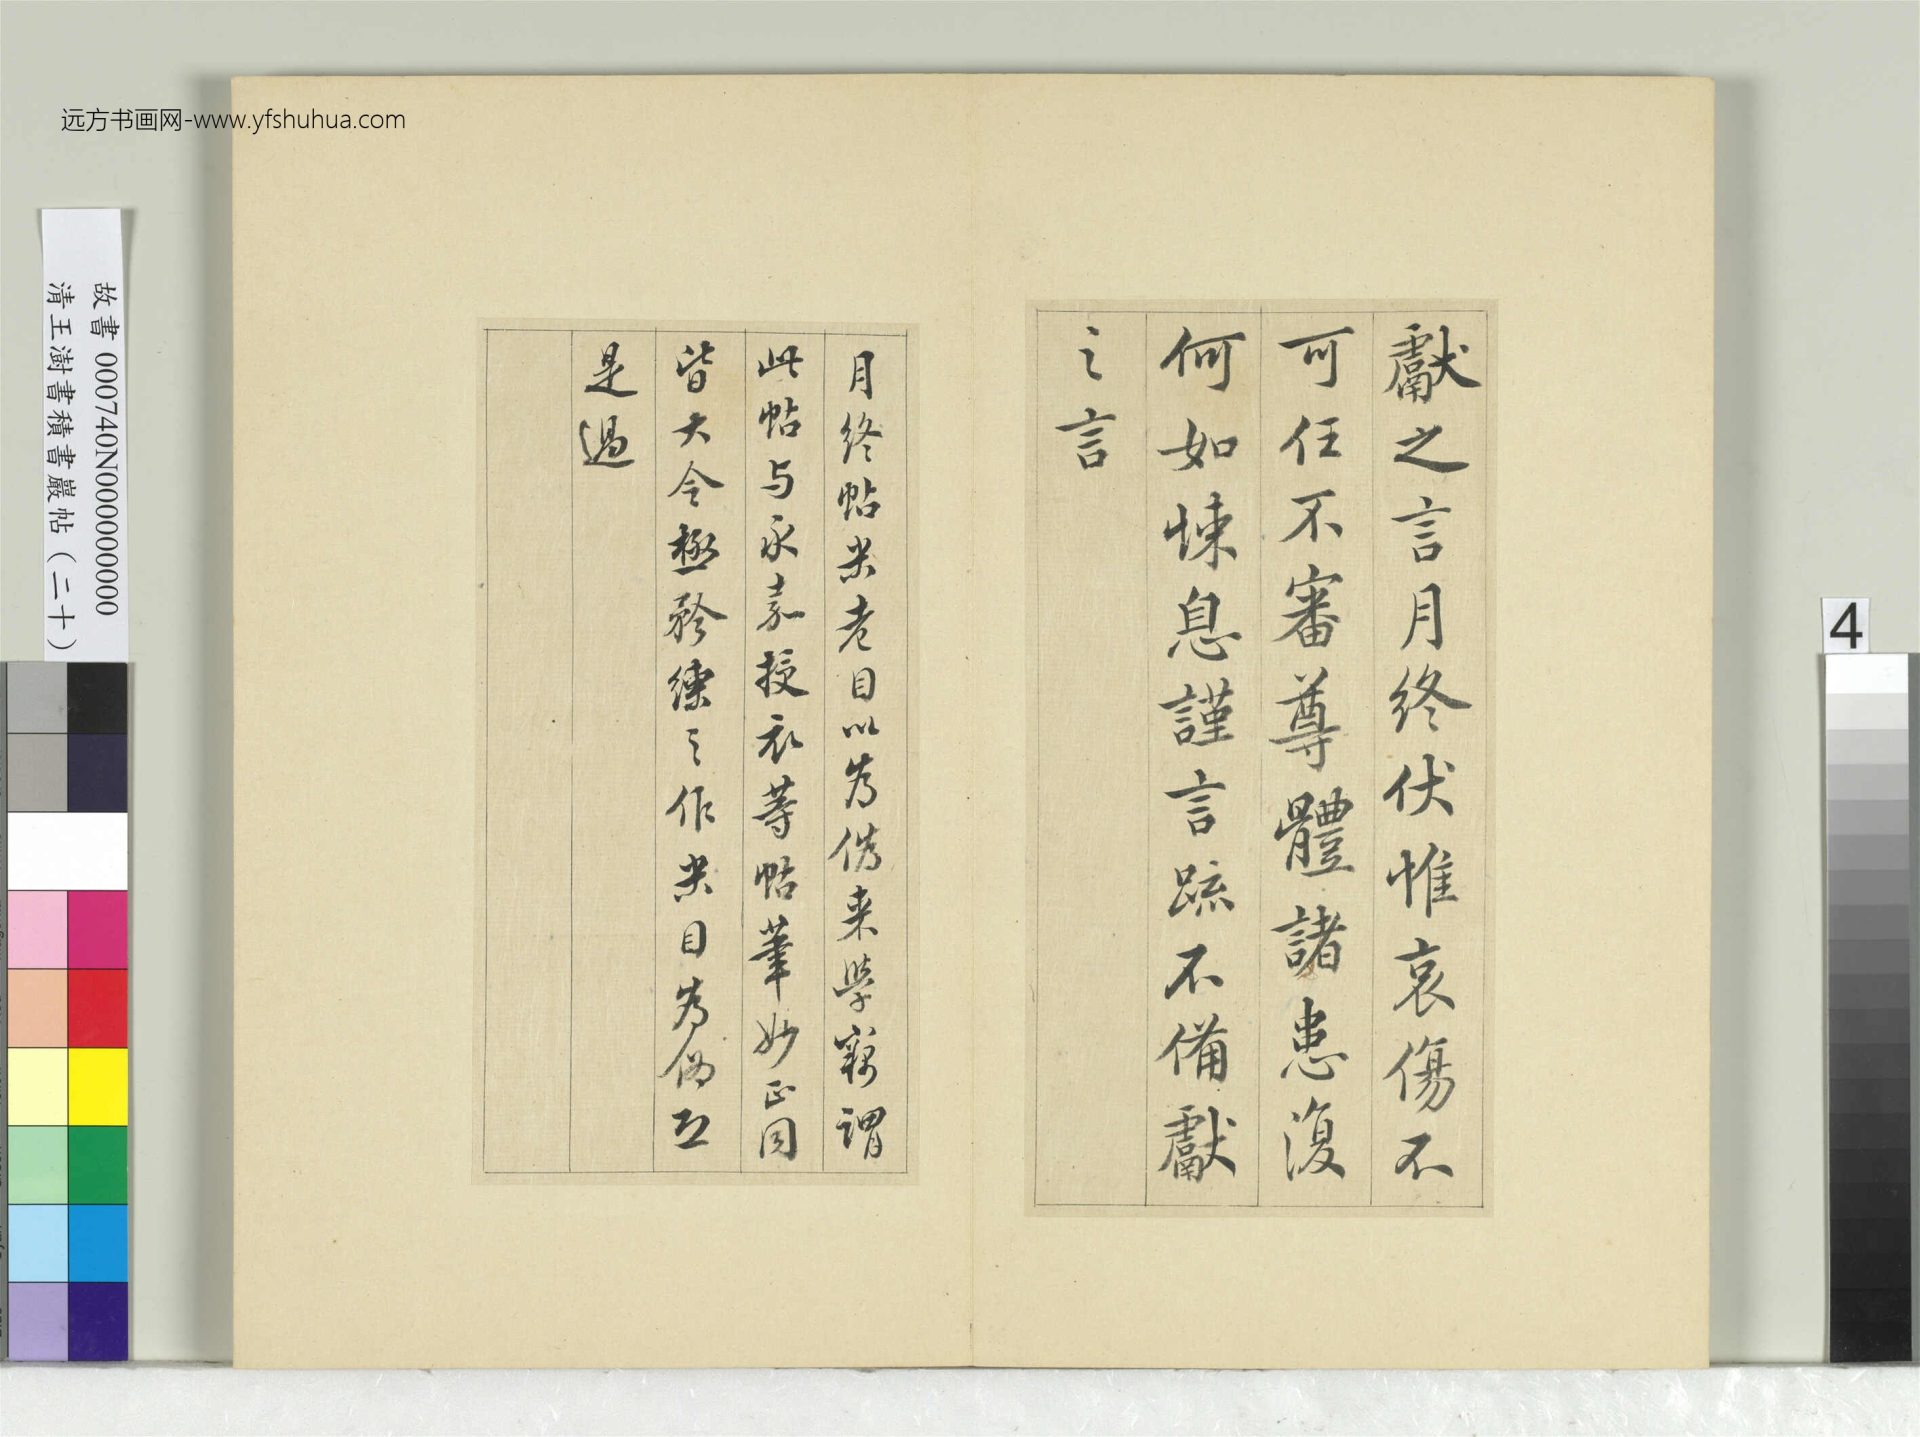 献之言月终伏惟哀傷不
可任不審尊體諸患復
何如悚息謹言疏不備獻
之言
月終帖米老目以為偽來學竊謂
此帖与永嘉授衣等帖筆妙正同
皆大令極矜練之作米目為偽亦
是過
远方书画网-www.yfshuhua.com
故書 000740N000000000
清王澍書積書巖帖（二十）
4